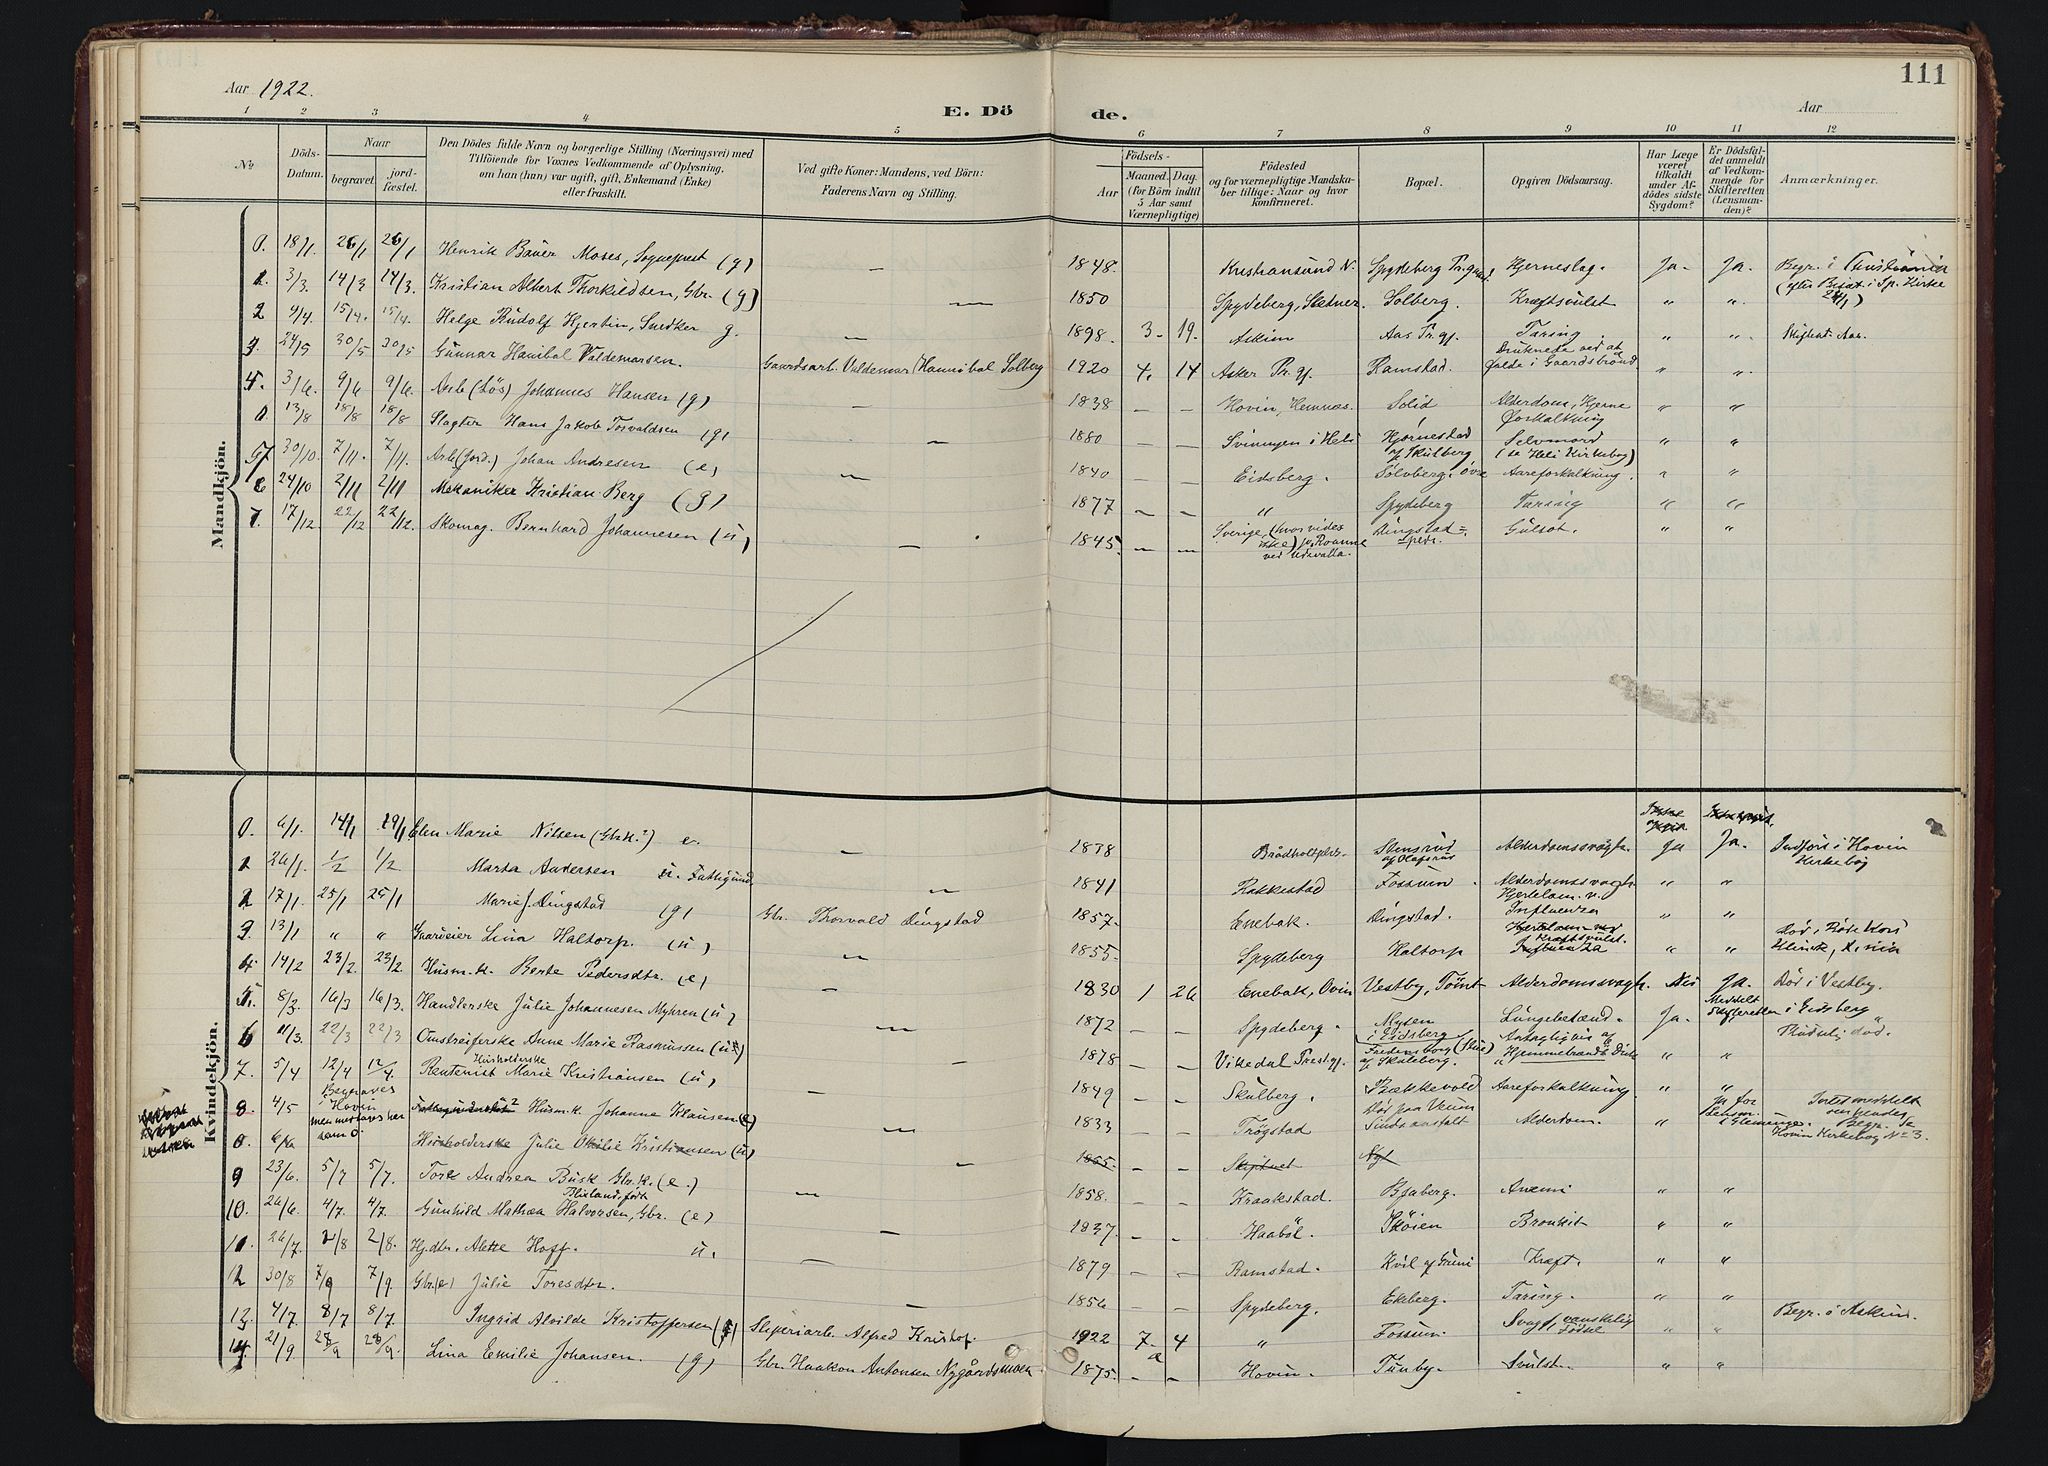 111
Aar 1922.
E. Dö de.
Aar
1 2 3 4 5 6 7 8 9 10 11 12
No
Döds-Datum.
Naar
begravet.
jordfæstet.
Den Dödes fulde Navn og borgerlige Stilling (Næringsvei) med
Tilföiende for Voxnes Vedkommende af Oplysning,
om han (hun) var ugift, gift, Enkemand (Enke)
eller fraskilt.
Ved gifte Koner: Mandens, ved Börn:
Faderens Navn og Stilling.
Födsels-
Aar
Maaned. Dag.
(for Börn indtil
5 Aar samt
Værnepligtige)
Födested
og for værnepligtige Mandskaber tillige: Naar og hvor
konfirmeret.
Bopæl.
Opgiven Dödsaarsag.
Har Læge
været
tilkaldt
under Afdödes sidste
Sygdom?
Er Dödsfaldet anmeldt
af Vedkommende for
Skifteretten
(Lensmanden)?
Anmærkninger.
Mandkjön.
0. 18/1 26/1 26/1 Henrik Bauer Moses, Sogneprest (g) — 1848. Kristiansund N. Spydeberg Hjerneslag. Ja. Ja. Begr. i Christiania
(efter Bisæt. i Sp. Kirke
1. 3/3. 14/3 14/3. Kristian Albert Thorkildsen, Gbr. (g) — 1850 Spydeberg, Solberg. Kræftsvulst " "
2 9/4. 15/4. 15/4. Helge Rudolf Hjertin, Snedker g. — 1898. 3. 19. Askim Aas Pr.gj. Tæring " "
3. 24/5 30/5 30/5 Gunnar Hanibal Valdemarsen. Gaardsarb. Valdemar Hannibal Solberg 1920 4. 14 Asker Pr.gj. Ramstad. Druknede ved at
falde i Gaardsbrønd " "
4. 3/6. 9/6 9/6. Arb. (Løs) Johannes Hansen (g) — 1838 — — Hovin, Hemnæs. Solid Alderdom, Hjerne
Forkalkning " "
0. 13/8 18/8 18/8 Slagter Hans Jakob Torvaldsen (g) — 1880 — — Sviningen i Heli Hjørnestad
af Skulberg Selvmord
(se Heli Kirkebog) " "
5 30/10. 7/11. 7/11. Arb. (Jord.) Johan Andresen (e) — 1840 — — Eidsberg. Sølvberg. Øvre Aareforkalkning. " "
6 24/10 2/11 2/11 Mekaniker Kristian Berg (g) 1877 — — " Spydeberg Tæring " "
7. 17/12 22/12 22/12. Skomag. Bernhard Johannesen (u) — 1845. — — Sverige, (hvor vides
ikke)
ved Udevalla. Dingstad Gulsot. " "
Kvindekjön.
0. 6/1. 14/1 19/1 Elen Marie Nilsen e. — 1838 Stensrud
af Olafsrud Alderdomssvagh. Ja Ja. Indført i Hovin
Kirkebog
1 26/1. 1/2 1/2 Marta Andersen u. — 1841 Rakkestad Fossum. Alderdomssvagh. " "
2 17/1. 25/1 25/1 Marie J. Dingstad (g) Gbr. Thorvald Dingstad 1857. Enebak. Dingstad. Influenza " "
3. 13/1 " " Gaardeier Lina Haltorp. (u) — 1855. Spydeberg Haltorp Influenza " " Død i Røde Kors
Klinik, Kr.nia
4. 14/2 23/2. 23/2. Husm.k. Berte Pedersdtr. (e) — 1830 1 26 Enebak, Ovin Vestby, Tømt Alderdomssvagh. Nei Ja. Død i Vestby.
5. 8/3. 16/3 16/3. Handlerske Julie Johannesen Myhren (u) — 1872 — — Spydeberg. Mysen
i Eidsberg Lungebetænd. Ja. Meddelt
Skifteretten i Eidsberg
6 11/3. 22/3 22/3 Omstreiferske Anne Marie Rasmussen (u) — 1878 — — Vikedal Prestgj. Fredensborg
af Skulberg. Antagligvis " " Pludselig død.
7. 5/4 12/4 12/4 Rentenist Husholderske Marie Kristiansen (u) — 1849 — — Skulberg. Bækkevold Aareforkalkning. " "
8. 4/5 Begraves
i Hovin Husm.k Johanne Klausen (e) — 1833 — — Trøgstad Død paa Veum
Sinds asatalt Alderdom. "
Hovin Kirkebog No 3.
0. Husholderske Julie Otilie Kristiansen (u) — 1855. — —
9 23/6. 5/7 5/7. Tork Andrea Busk Gbr.k. (e.) — 1858. — — Kraakstad. Bjaberg. Anæmi " "
10. 26/6. 4/7. 4/7. Gunhild Mathea Halvorsen, Gbr. (e) — 1837. — — Haabøl. Skøien Bronkit " "
11. 26/7. 2/8 2/8. Hj.dtr. Alette Hoff. u. — 1879 — — Ramstad. Kvil Kræft. " "
12 30/8 7/9 7/9 Gbr. (e) Julie Toresdtr. — 1856 — — Spydeberg. Ekeberg. Tæring. " " Begr. i Askim.
13. 4/7. 8/7 8/7. Ingrid Alvilde Kristoffersen Sliperiarb. Alfred Kristof. 1922 7. 4 " Fossum. Svagf, vanskelig
Fødsel " "
14. 21/9. 28/9 28/9. Lina Emilie Johansen. (g) Gbr. Haakon Antonsen Nygårdsmoen 1875. — — Hovin. Tunby. Svulst. " "